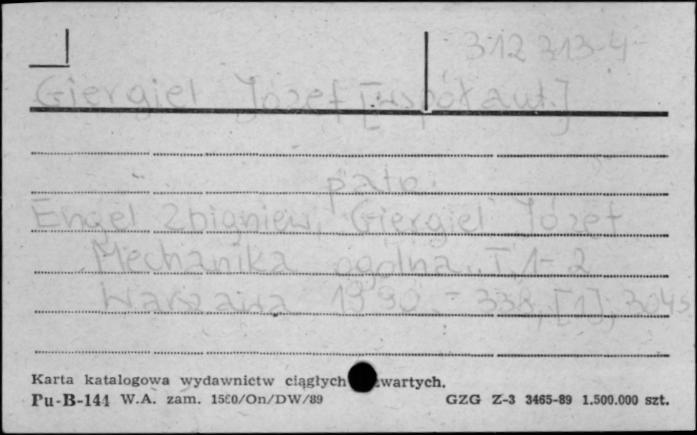 312 313-4
Giergiel Józef [współaut.]
patrz
Engel Zbigniew, Giergiel Józef
Mechanika ogólna. T. 1-2
Warszawa 1990. - 338, [1], 304 s.
Karta katalogowa wydawnictw ciągłych wartych.
Pu-B-144 W.A. zam. 1580/On/DW/89 GZG Z-3 3465-89 1.500.000 szt.